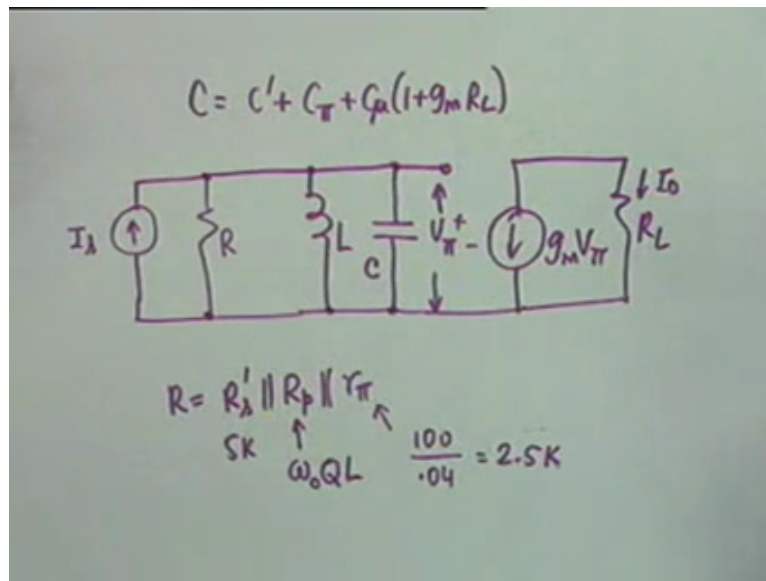 C = C' + Cπ + Cμ(1+gmRL)
Is R L C Vπ + - gmVπ ↓ Io RL
R = Rs' || Rp || rπ
5K ω₀QL 100/.04 = 2.5K